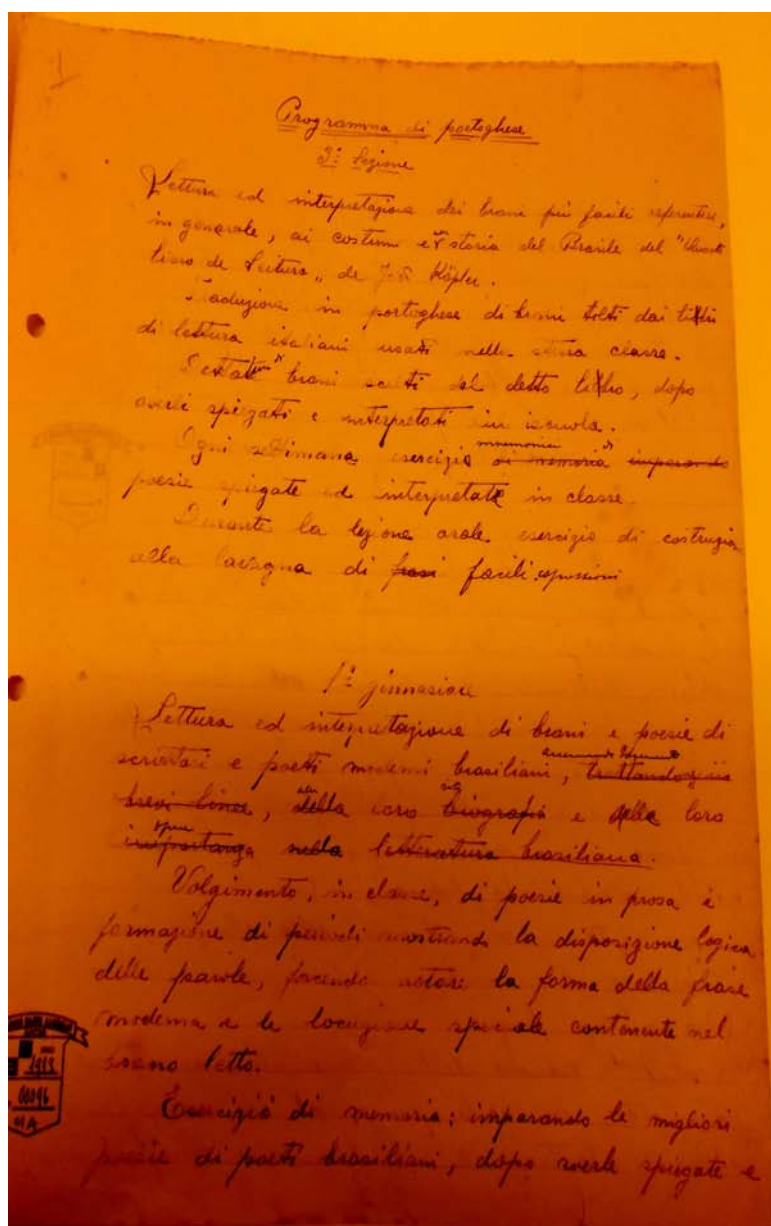 1
Programma di portoghese
3ª lezione
Lettura ed interpretazione dei brani più facili referentesi,
in generale, ai costumi e storia del Brasile del "Quarto
livro de Leitura" de Köpke.
Traduzione in portoghese di brani tolti dai libri
di lettura italiani usati nella stessa classe.
Dettati brani scelti del detto libro, dopo
averli spiegati e interpretati in iscuola.
mnemonico di
Ogni settimana esercizio di memoria imparando
poesie spiegate ed interpretate in classe.
Durante la lezione orale esercizio di costruzion
alla lavagna di frasi facili espressioni
1ª ginnasiale
Lettura ed intepretazione di brani e poesie di
scrittori e poeti moderni brasiliani, trattando
brevi linee, della loro biografia e della loro
opere
importanza nella letteratura brasiliana.
Volgimento, in classe, di poesie in prosa e
formazione di periodi mostrando la disposizione logica
delle parole, facendo notare la forma della frase
moderna e le locuzione speciale contenente nel
brano letto.
1913
00096
Esercizio di memoria: imparando le migliori
poesie di poeti brasiliani, dopo averle spiegate e